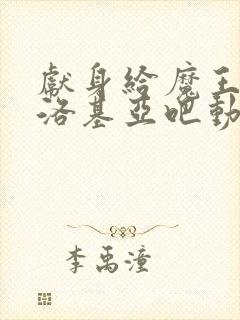 獻身給魔王
洛基亞吧動
李禹潼